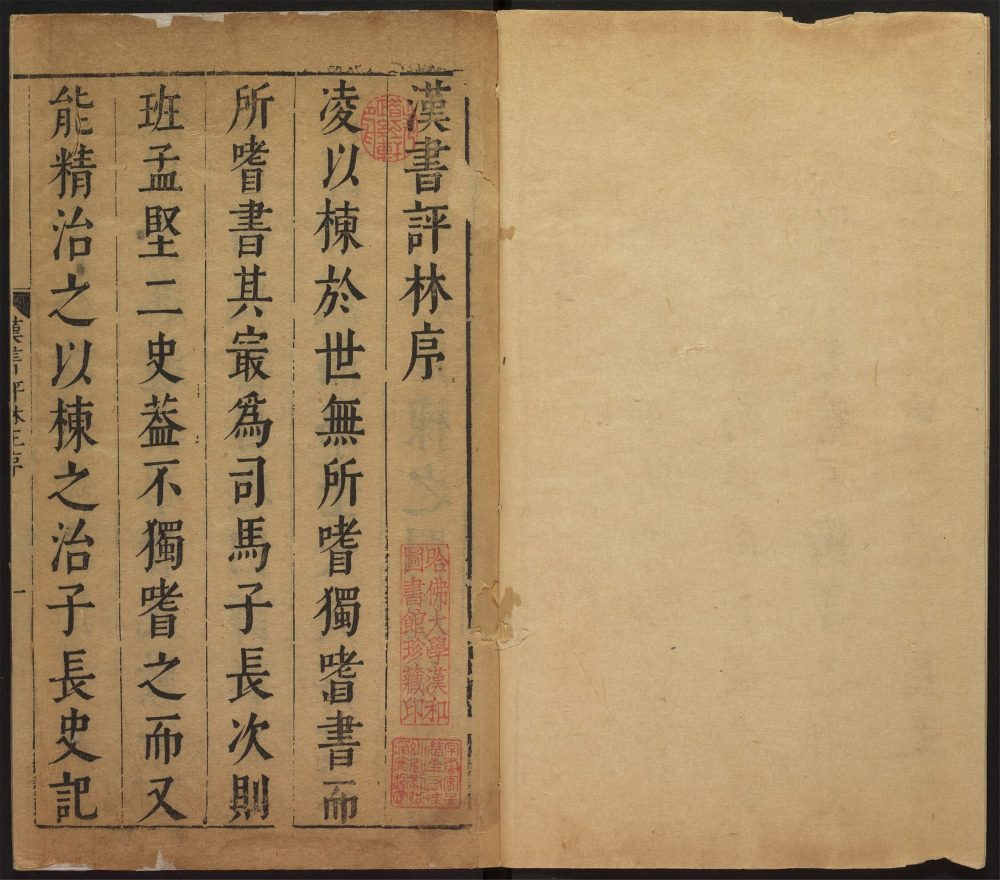 漢書評林序
凌以棟於世無所嗜獨嗜書而
所嗜書其㝡爲司馬子長次則
班孟堅二史葢不獨嗜之而又
能精治之以棟之治子長史記
漢書評林王序
一
哈佛大學漢和
圖書館珍藏印